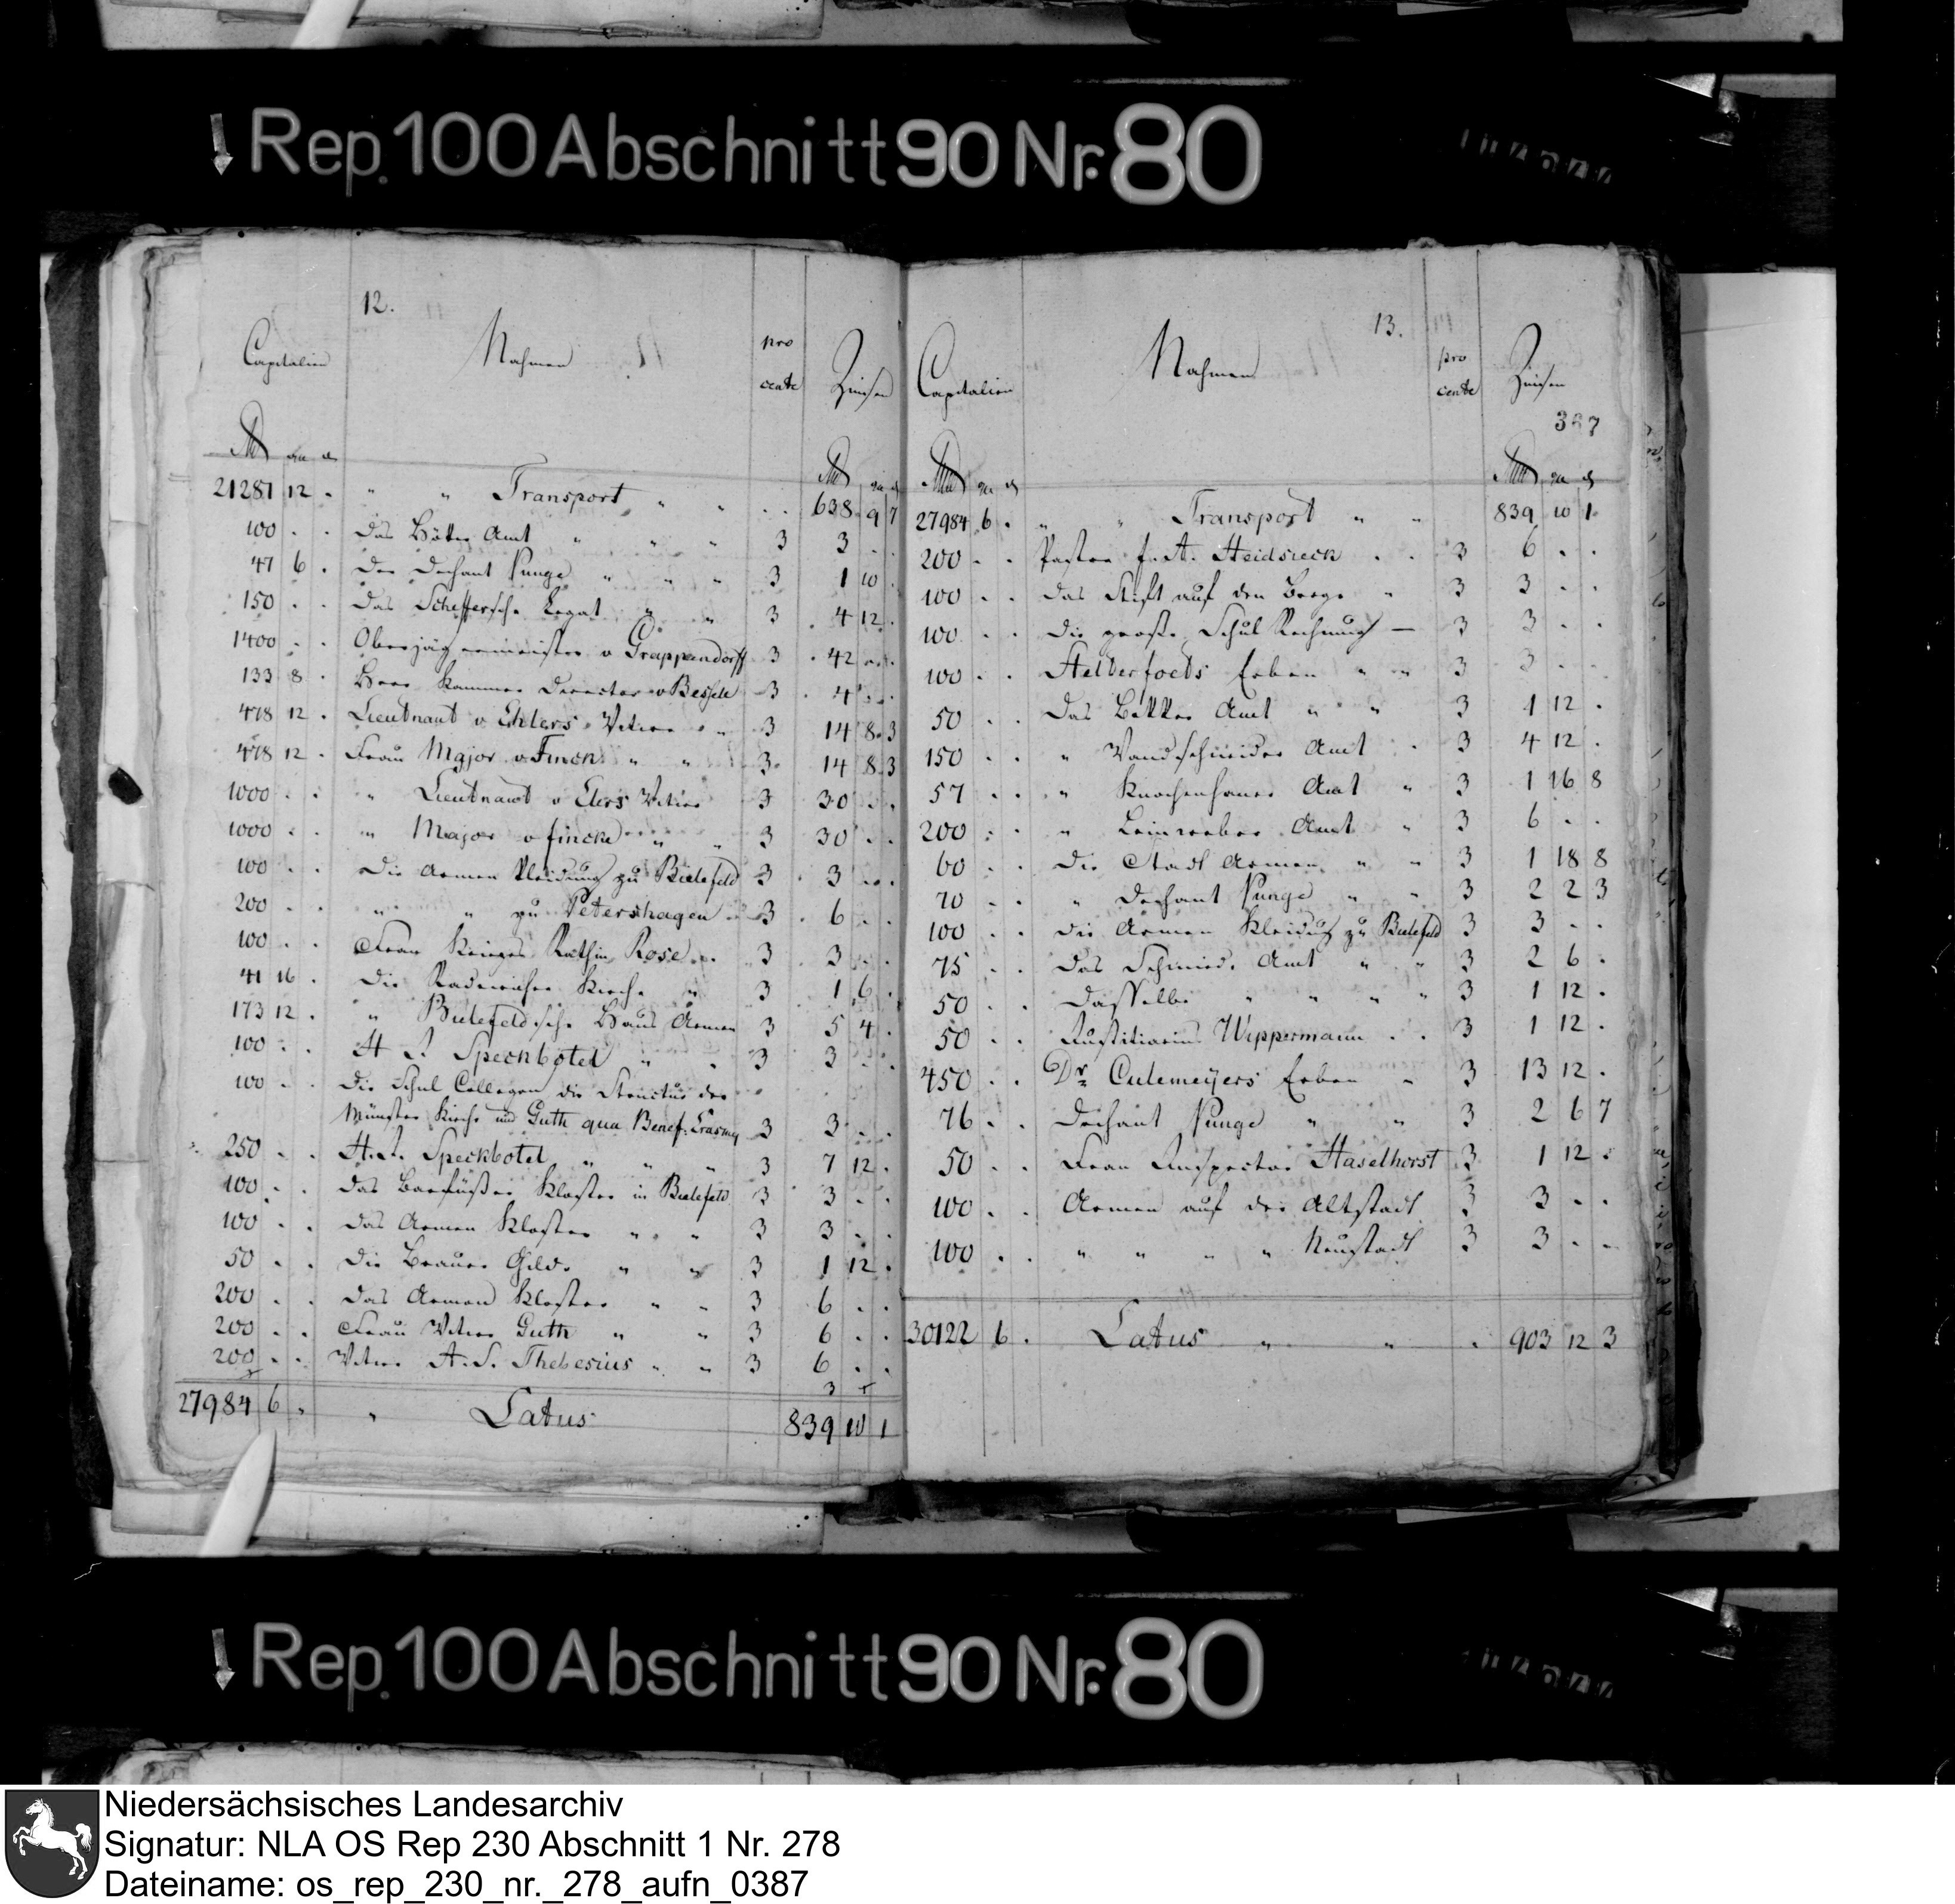 Rep. 100 Abschnitt 90 Nr. 80
12.
Capitalien Nahmen pro cente Zinsen
21281 12 . " " Transport " " . . 638 9 7
100 . . Das Höker Amt " " " 3 3 . .
47 6 . Der Dechant Punge " " " 3 1 10 .
150 . . Das Scheffersche Legat " " 3 4 12 .
1400 . . Oberjägermeister v Grappendorff 3 42 . .
133 8 . Herr Kammer Director v Bessele 3 4 . .
478 12 . Lieutnant v Ehlers Witwe " 3 14 8 3
478 12 . Frau Major v Finck " " 3 14 8 3
1000 . . " Lieutnant v Elers Witwe 3 30 . .
1000 . . " Major v fincke " " 3 30 . .
100 . . Die Armen Kleidung zu Bielefeld 3 3 . .
200 . . " " zu Petershagen 3 6 . .
100 . . Frau Krieges Räthin Rose . . 3 3 . .
41 16 . Die Kirche " 3 1 6 .
173 12 . " Bielefeldsche Haus Armen 3 5 4 .
100 . . H J. Speckbötel " . 3 3 . .
100 . . Die Schul Collegen die Structur der
Münster Kirche und Guth qua Benef: Erasmy 3 3 . .
250 . . H. J. Speckbotel " " " 3 7 12 .
100 . . Das Barfüßer Kloster in Bielefeld 3 3 . .
100 . . Das Armen Kloster " " 3 3 . .
50 . . Die Brauer Gilde " " 3 1 12 .
200 . . Das Armen Kloster " " 3 6 . .
200 . . Frau Witwe Guth " " 3 6 . .
200 . . Witwe A. S. Thebesius " " 3 6 . .
27984 6 . " Latus 839 10 1
13.
Capitalien Nahmen pro cente Zinsen
387
27984 6 . " " Transport " " 839 10 1
200 . . Pastor f. A. Heidsieck . . 3 6 . .
100 . . Das Stift auf den Berge " 3 3 . .
100 . . Die große Schul Rechnung — 3 3 . .
100 . . Erben " " 3 3 . .
50 . . Das Bekker Amt " " 3 1 12 .
150 . . " Wandschneider Amt . 3 4 12 .
57 . . " Knochenhauer Amt " 3 1 16 8
200 . . " Leinweber Amt " 3 6 . .
60 . . Die Stadt Armen " " 3 1 18 8
70 . . " Dechant Punge " " 3 2 2 3
100 . . Die Armen Kleidung zu Bielefeld 3 3 . .
75 . . Das Schmiede Amt " " 3 2 6 .
50 . . Dasselbe " " " " 3 1 12 .
50 . . Justitiarius Wippermann . . 3 1 12 .
450 . . Dr Culemeyers Erben " 3 13 12 .
76 . . Dechant Punge " " 3 2 6 7
50 . . Frau Inspector Haselhorst 3 1 12 .
100 . . Armen auf der Altstadt 3 3 . .
100 . . " " " " Neustadt 3 3 . .
30122 6 . Latus " " . 903 12 3
Rep. 100 Abschnitt 90 Nr. 80
Niedersächsisches Landesarchiv
Signatur: NLA OS Rep 230 Abschnitt 1 Nr. 278
Dateiname: os_rep_230_nr._278_aufn_0387